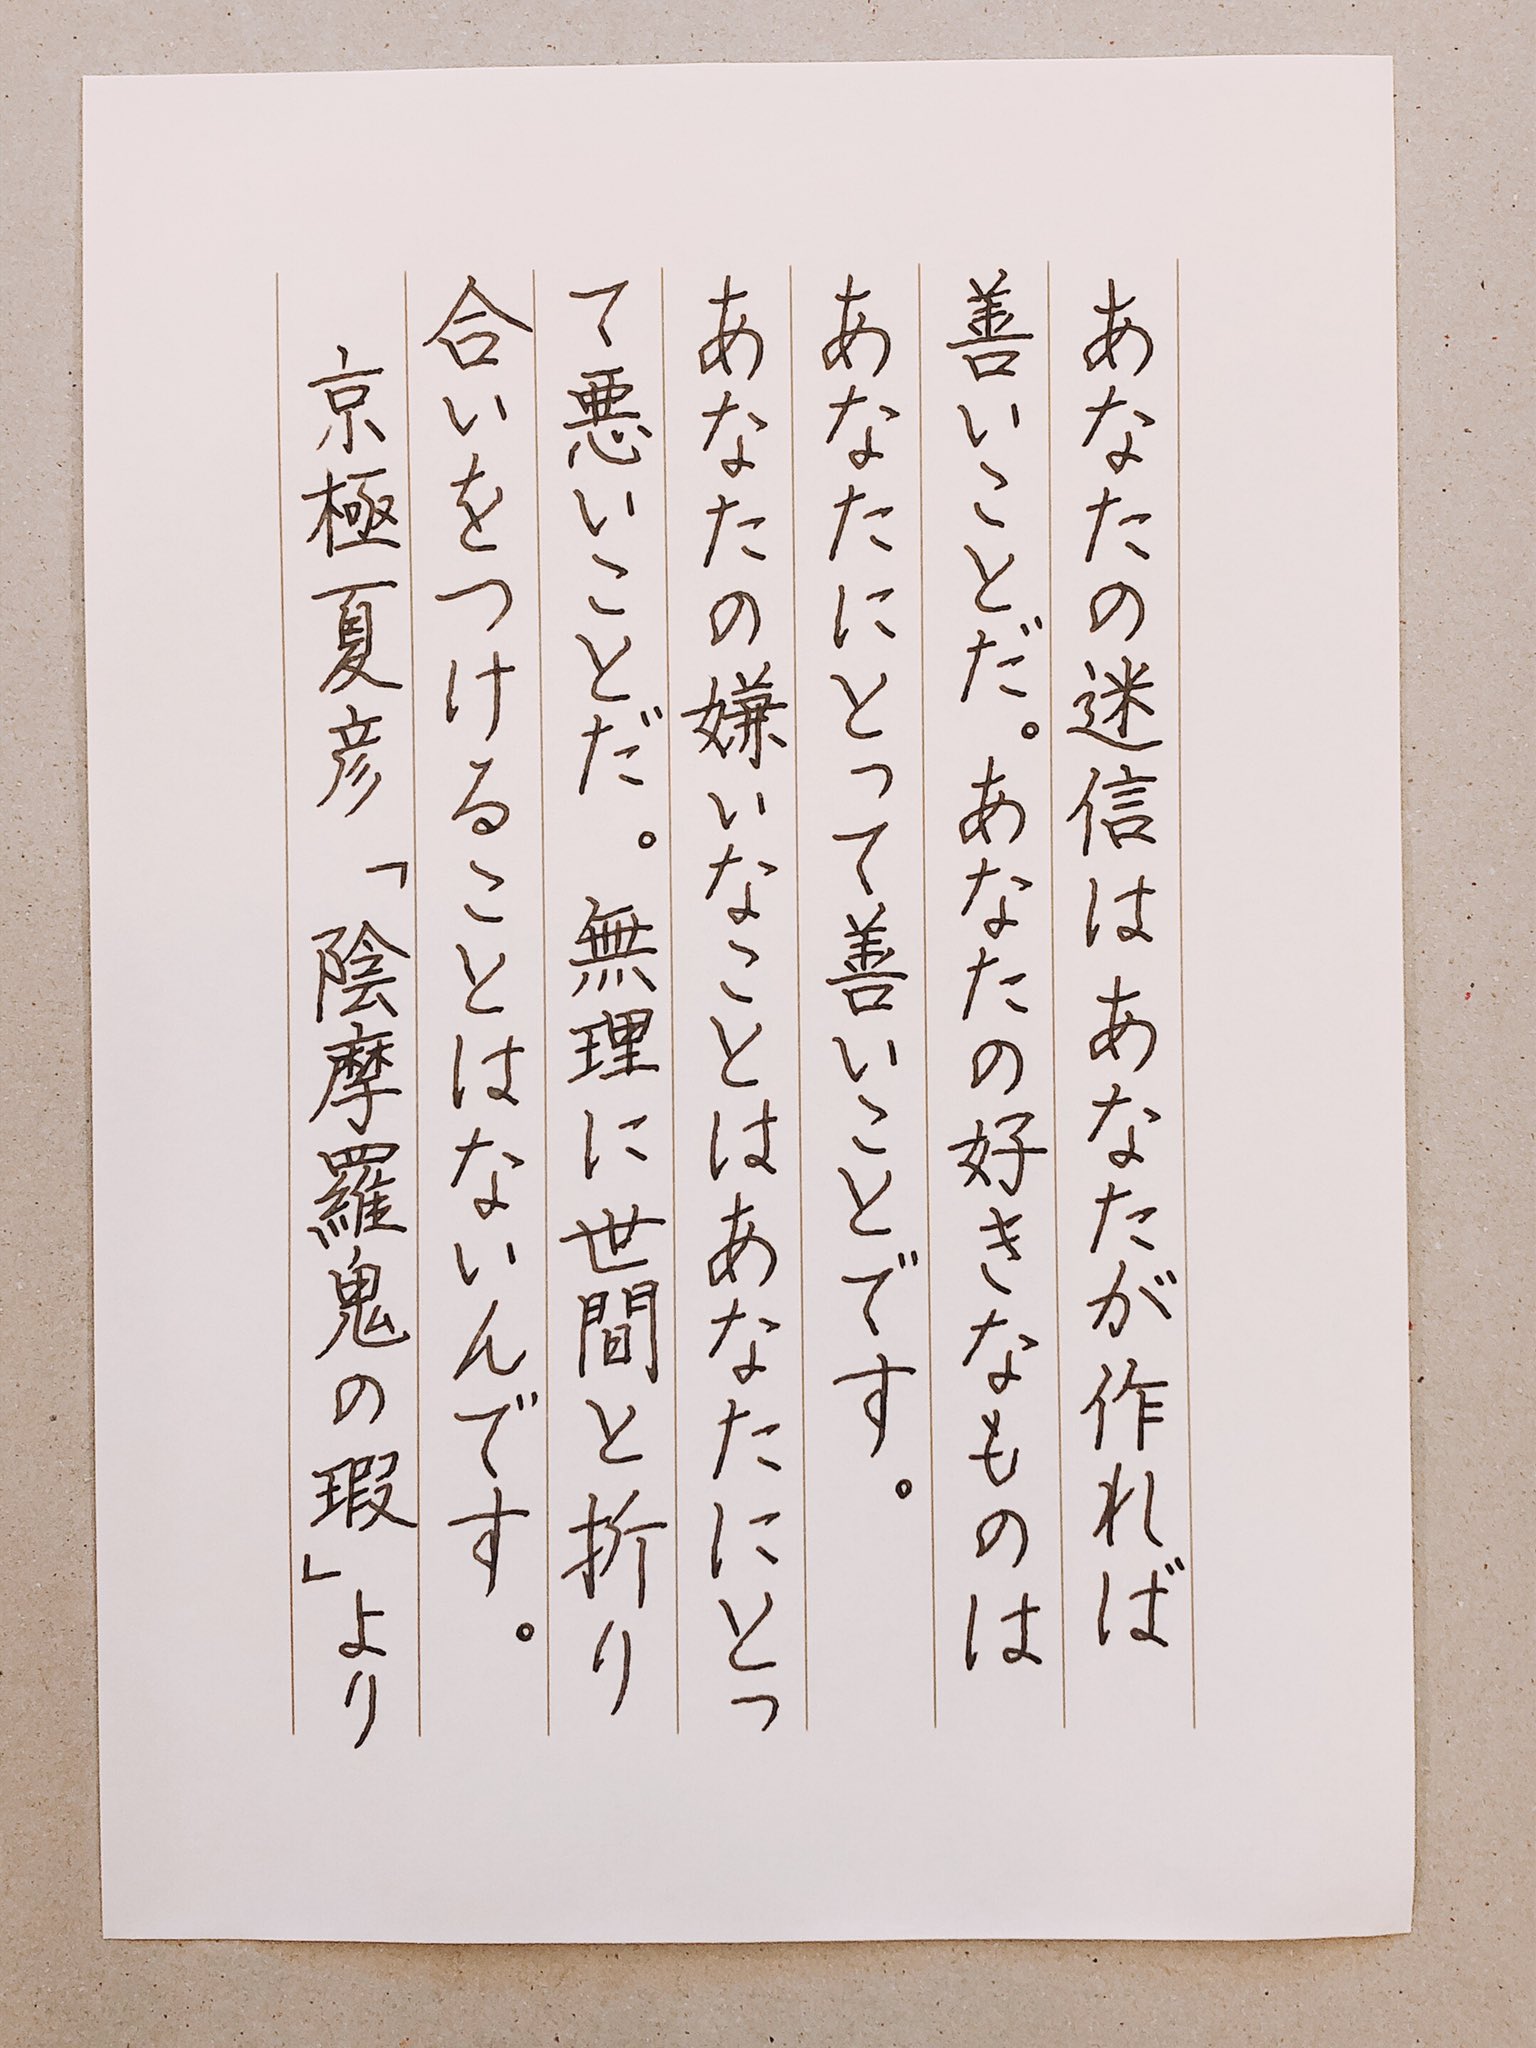 あなたの迷信はあなたが作れば
善いことだ。あなたの好きなものは
あなたにとって善いことです。
あなたの嫌いなことはあなたにとっ
て悪いことだ。無理に世間と折り
合いをつけることはないんです。
京極夏彦「陰摩羅鬼の瑕」より